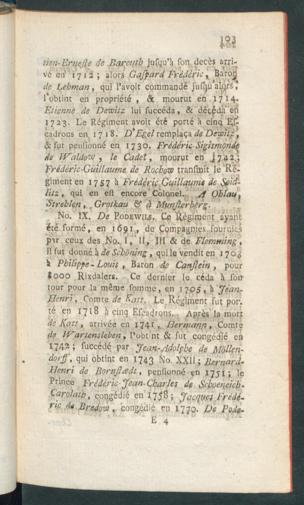 103
tien-Ernefte de Bareuth jufqu'à fon decès arri-
vé en 1712; alors Gafpard Frédéric, Baron
de Lehman, qui l'avoit commandé jufqu'alors,
l'obtint en propriété, & mourut en 1714.
Etienne de Dewitz lui fuccéda, & décéda en
1723. Le Régiment avoit été porté à cinq Ef-
cadrons en 1718. D'Egel remplaça de Dewitz,
& fut penfionné en 1730. Frédéric-Sigismonde
de Waldow, le Cadet, mourut en 1742;
Frédéric-Guillaume de Rochow transmit le Ré-
giment en 1757 à Frédéric Guillaume de Seid-
litz, qui en eft encore Colonel. A Ohlau,
Strehlen, Grotkau & à Munfterberg.
No. IX. De Podewils. Ce Régiment ayant
été formé, en 1691, de Compagnies fournies
par ceux des No. I, II, III & de Flemming,
il fut donné à de Schöning, qui le vendit en 1703
à Philippe-Louis, Baron de Canftein, pour
8000 Rixdalers. Ce dernier le céda à fon
tour pour la même fomme, en 1705, à Jean-
Henri, Comte de Katt. Le Régiment fut por-
té en 1718 à cinq Efcadrons. Après la mort
de Katt, arrivée en 1741, Hermann, Comte
de Wartensleben, l'obtint & fut congédié en
1742; fuccédé par Jean-Adolphe de Möllen-
dorff, qui obtint en 1743 No. XXII; Bernard-
Henri de Bornftedt, penfionné en 1751; le
Prince Frédéric-Jean-Charles de Schoeneich-
Carolath, congédié en 1758; Jacques Frédé-
ric de Bredow, congédié en 1770. De Pode-
E 4